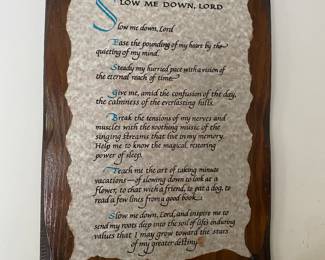 SLOW ME DOWN, LORD
Slow me down, Lord
Ease the pounding of my heart by the
quieting of my mind.
Steady my hurried pace with a vision of
the eternal reach of time.
Give me, amid the confusion of the day,
the calmness of the everlasting hills.
Break the tensions of my nerves and
muscles with the soothing music of the
singing streams that live in my memory.
Help me to know the magical, restoring
power of sleep.
Teach me the art of taking minute
vacations—of slowing down to look at a
flower, to chat with a friend, to pat a dog, to
read a few lines from a good book.
Slow me down, Lord, and inspire me to
send my roots deep into the soil of life's enduring
values that I may grow toward the stars
of my greater destiny.